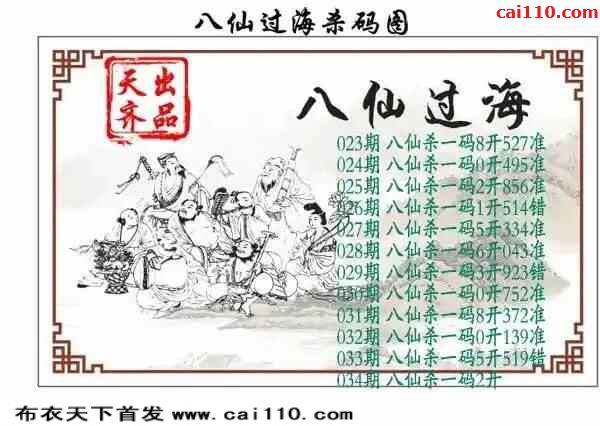 八仙过海杀码图
cai110.com
天齐出品
八仙过海
023期 八仙杀一码8开527准
024期 八仙杀一码0开495准
025期 八仙杀一码2开856准
026期 八仙杀一码1开514错
027期 八仙杀一码5开334准
028期 八仙杀一码6开043准
029期 八仙杀一码3开923错
030期 八仙杀一码0开752准
031期 八仙杀一码8开372准
032期 八仙杀一码0开139准
033期 八仙杀一码5开519错
034期 八仙杀一码2开
布衣天下首发 www.cai110.com